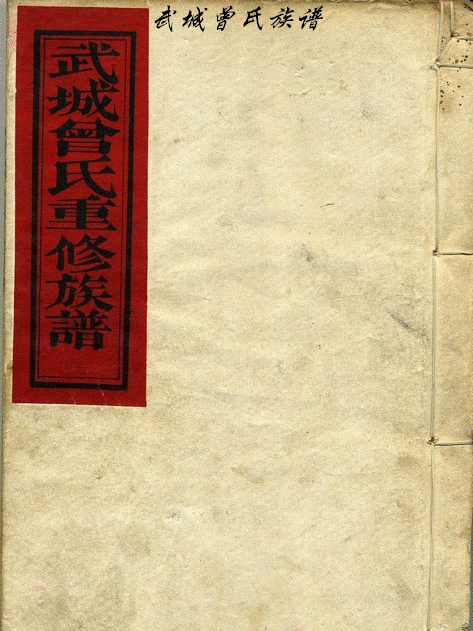 武城曾氏族谱
武城曾氏重修族譜